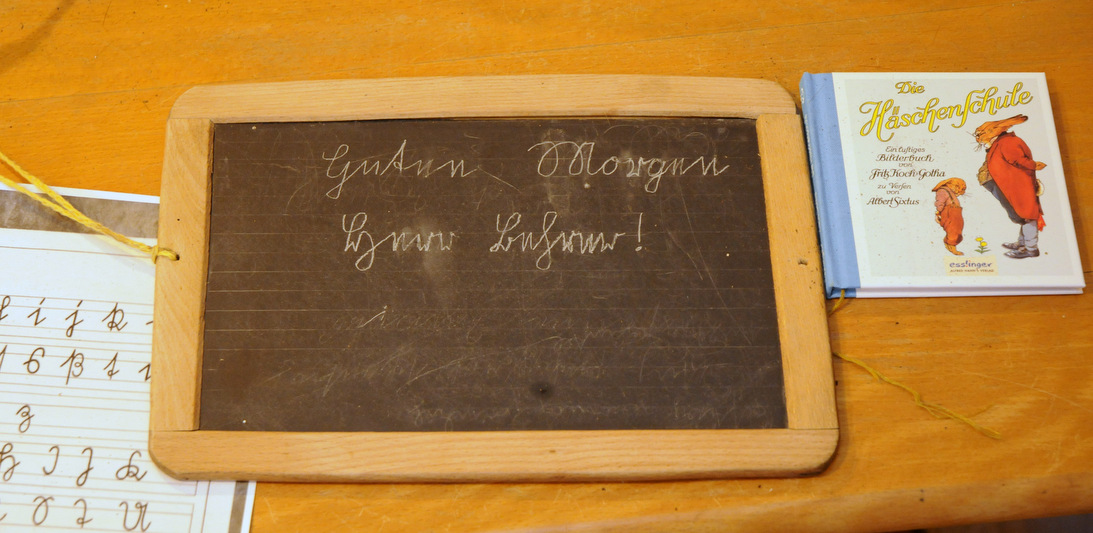 Guten Morgen
Herr Lehrer!
i j k
s ß t
z
H I J K
S T U
Die
Häschenschule
Ein lustiges
Bilderbuch
von
Fritz Koch-Gotha
zu Versen
von
Albert Sixtus
esslinger
ALFRED HAHN'S VERLAG